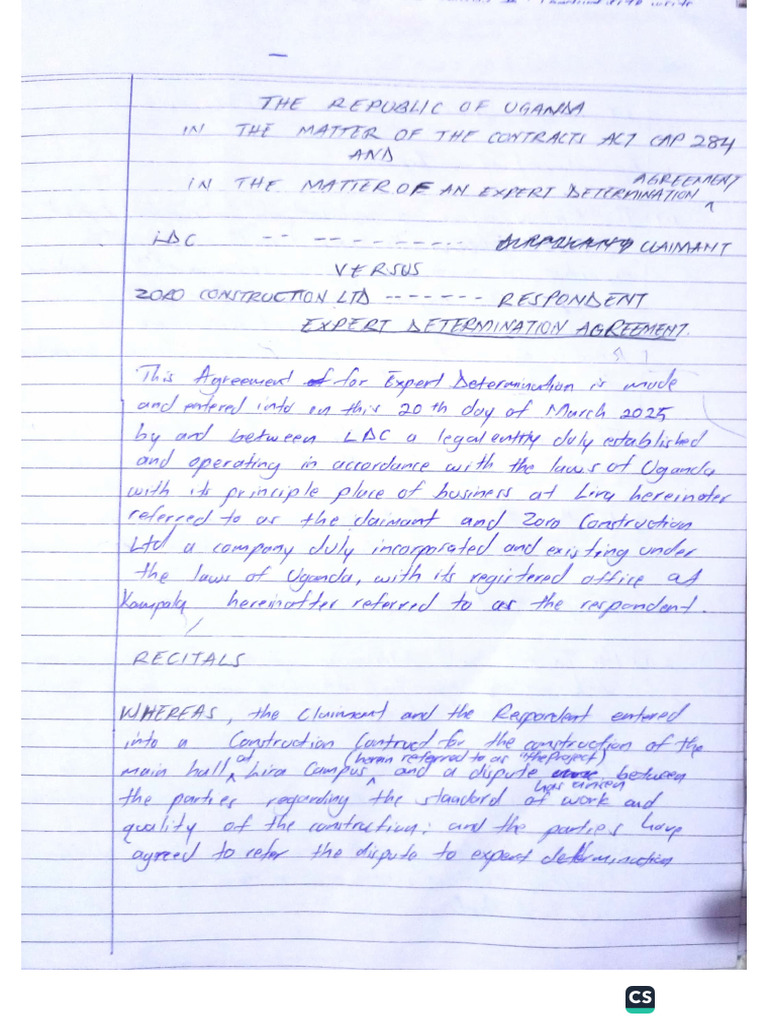 THE REPUBLIC OF UGANDA
IN THE MATTER OF THE CONTRACTS ACT CAP 284
AND
IN THE MATTER OF AN EXPERT DETERMINATION AGREEMENT
LDC -- -- - - - - - - - CLAIMANT
VERSUS
ZORO CONSTRUCTION LTD ------- RESPONDENT
EXPERT DETERMINATION AGREEMENT.
This Agreement for Expert Determination is made
and entered into on this 20th day of March 2025
by and between LDC a legal entity duly established
and operating in accordance with the laws of Uganda
with its principle place of business at Lira hereinafter
referred to as the claimant and Zoro Construction
Ltd a company duly incorporated and existing under
the laws of Uganda, with its registered office at
Kampala hereinafter referred to as the respondent.
RECITALS
WHEREAS, the Claimant and the Respondent entered
into a Construction Contract for the construction of the
main hall at Lira Campus (herein referred to as "the Project) and a dispute has arisen between
the parties regarding the standard of work and
quality of the construction; and the parties have
agreed to refer the dispute to expert determination
CS